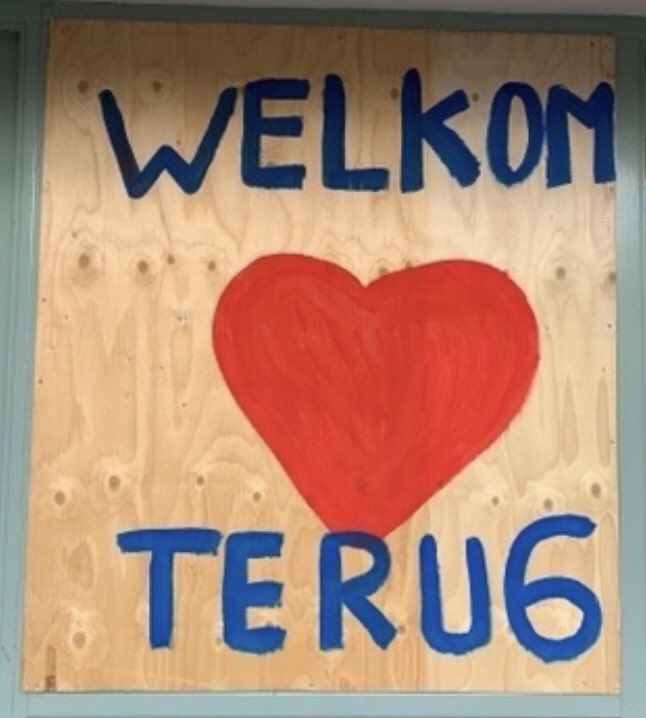 WELKOM
TERUG